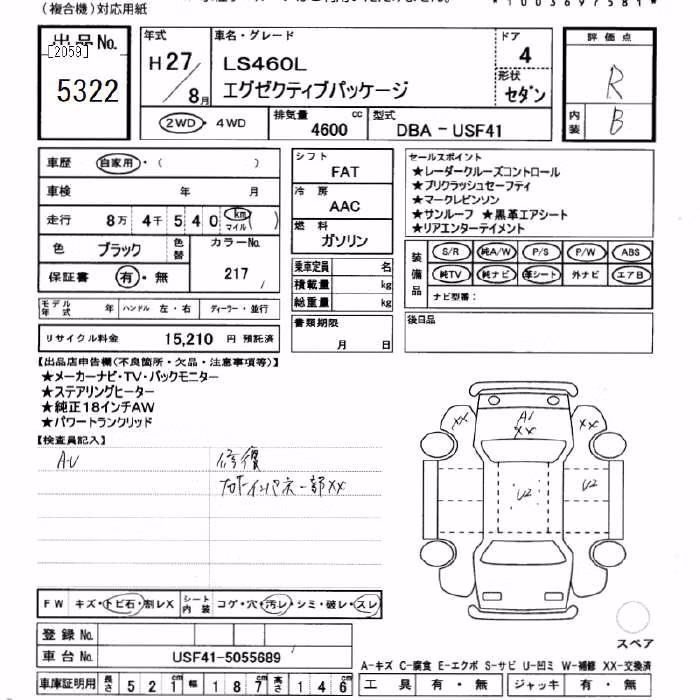 (複合機)対応用紙
*1003697581*
出品No.
[2059]
5322
年式
H27/8月
車名・グレード
LS460L
エグゼクティブパッケージ
ドア
4
形状
セダン
2WD・4WD
排気量
4600 cc
型式
DBA-USF41
評価点
R
内装
B
車歴 自家用・( )
車検 年 月
走行 8万 4千 5 4 0 km マイル ( )
色 ブラック 色替 カラーNo.
保証書 有・無 217 /
モデル年式 年 ハンドル 左・右 ディーラー・並行
リサイクル料金 15,210 円 預託済
シフト
FAT
冷房
AAC
燃料
ガソリン
乗車定員 名
積載量 kg
総重量 kg
書類期限
月 日
セールスポイント
★レーダークルーズコントロール
★プリクラッシュセーフティ
★マークレビンソン
★サンルーフ ★黒革エアシート
★リアエンターテイメント
装備品
S/R 純A/W P/S P/W ABS
純TV 純ナビ 革シート 外ナビ エアB
ナビ型番:
後日品
【出品店申告欄(不良箇所・欠品・注意事項等)】
★メーカーナビ・TV・バックモニター
★ステアリングヒーター
★純正18インチAW
★パワートランクリッド
【検査員記入】
A・U 修復
XX A1 XX XX
U2 U2
FW キズ・トビ石・割レX シート内装 コゲ・穴・汚レ・シミ・破レ・スレ
登録No.
車台No. USF41-5055689
車庫証明用 長さ 521cm 幅 187cm 高さ 146cm
スペア
A-キズ C-腐食 E-エクボ S-サビ U-凹ミ W-補修 XX-交換済
工具 有・無 ジャッキ 有・無